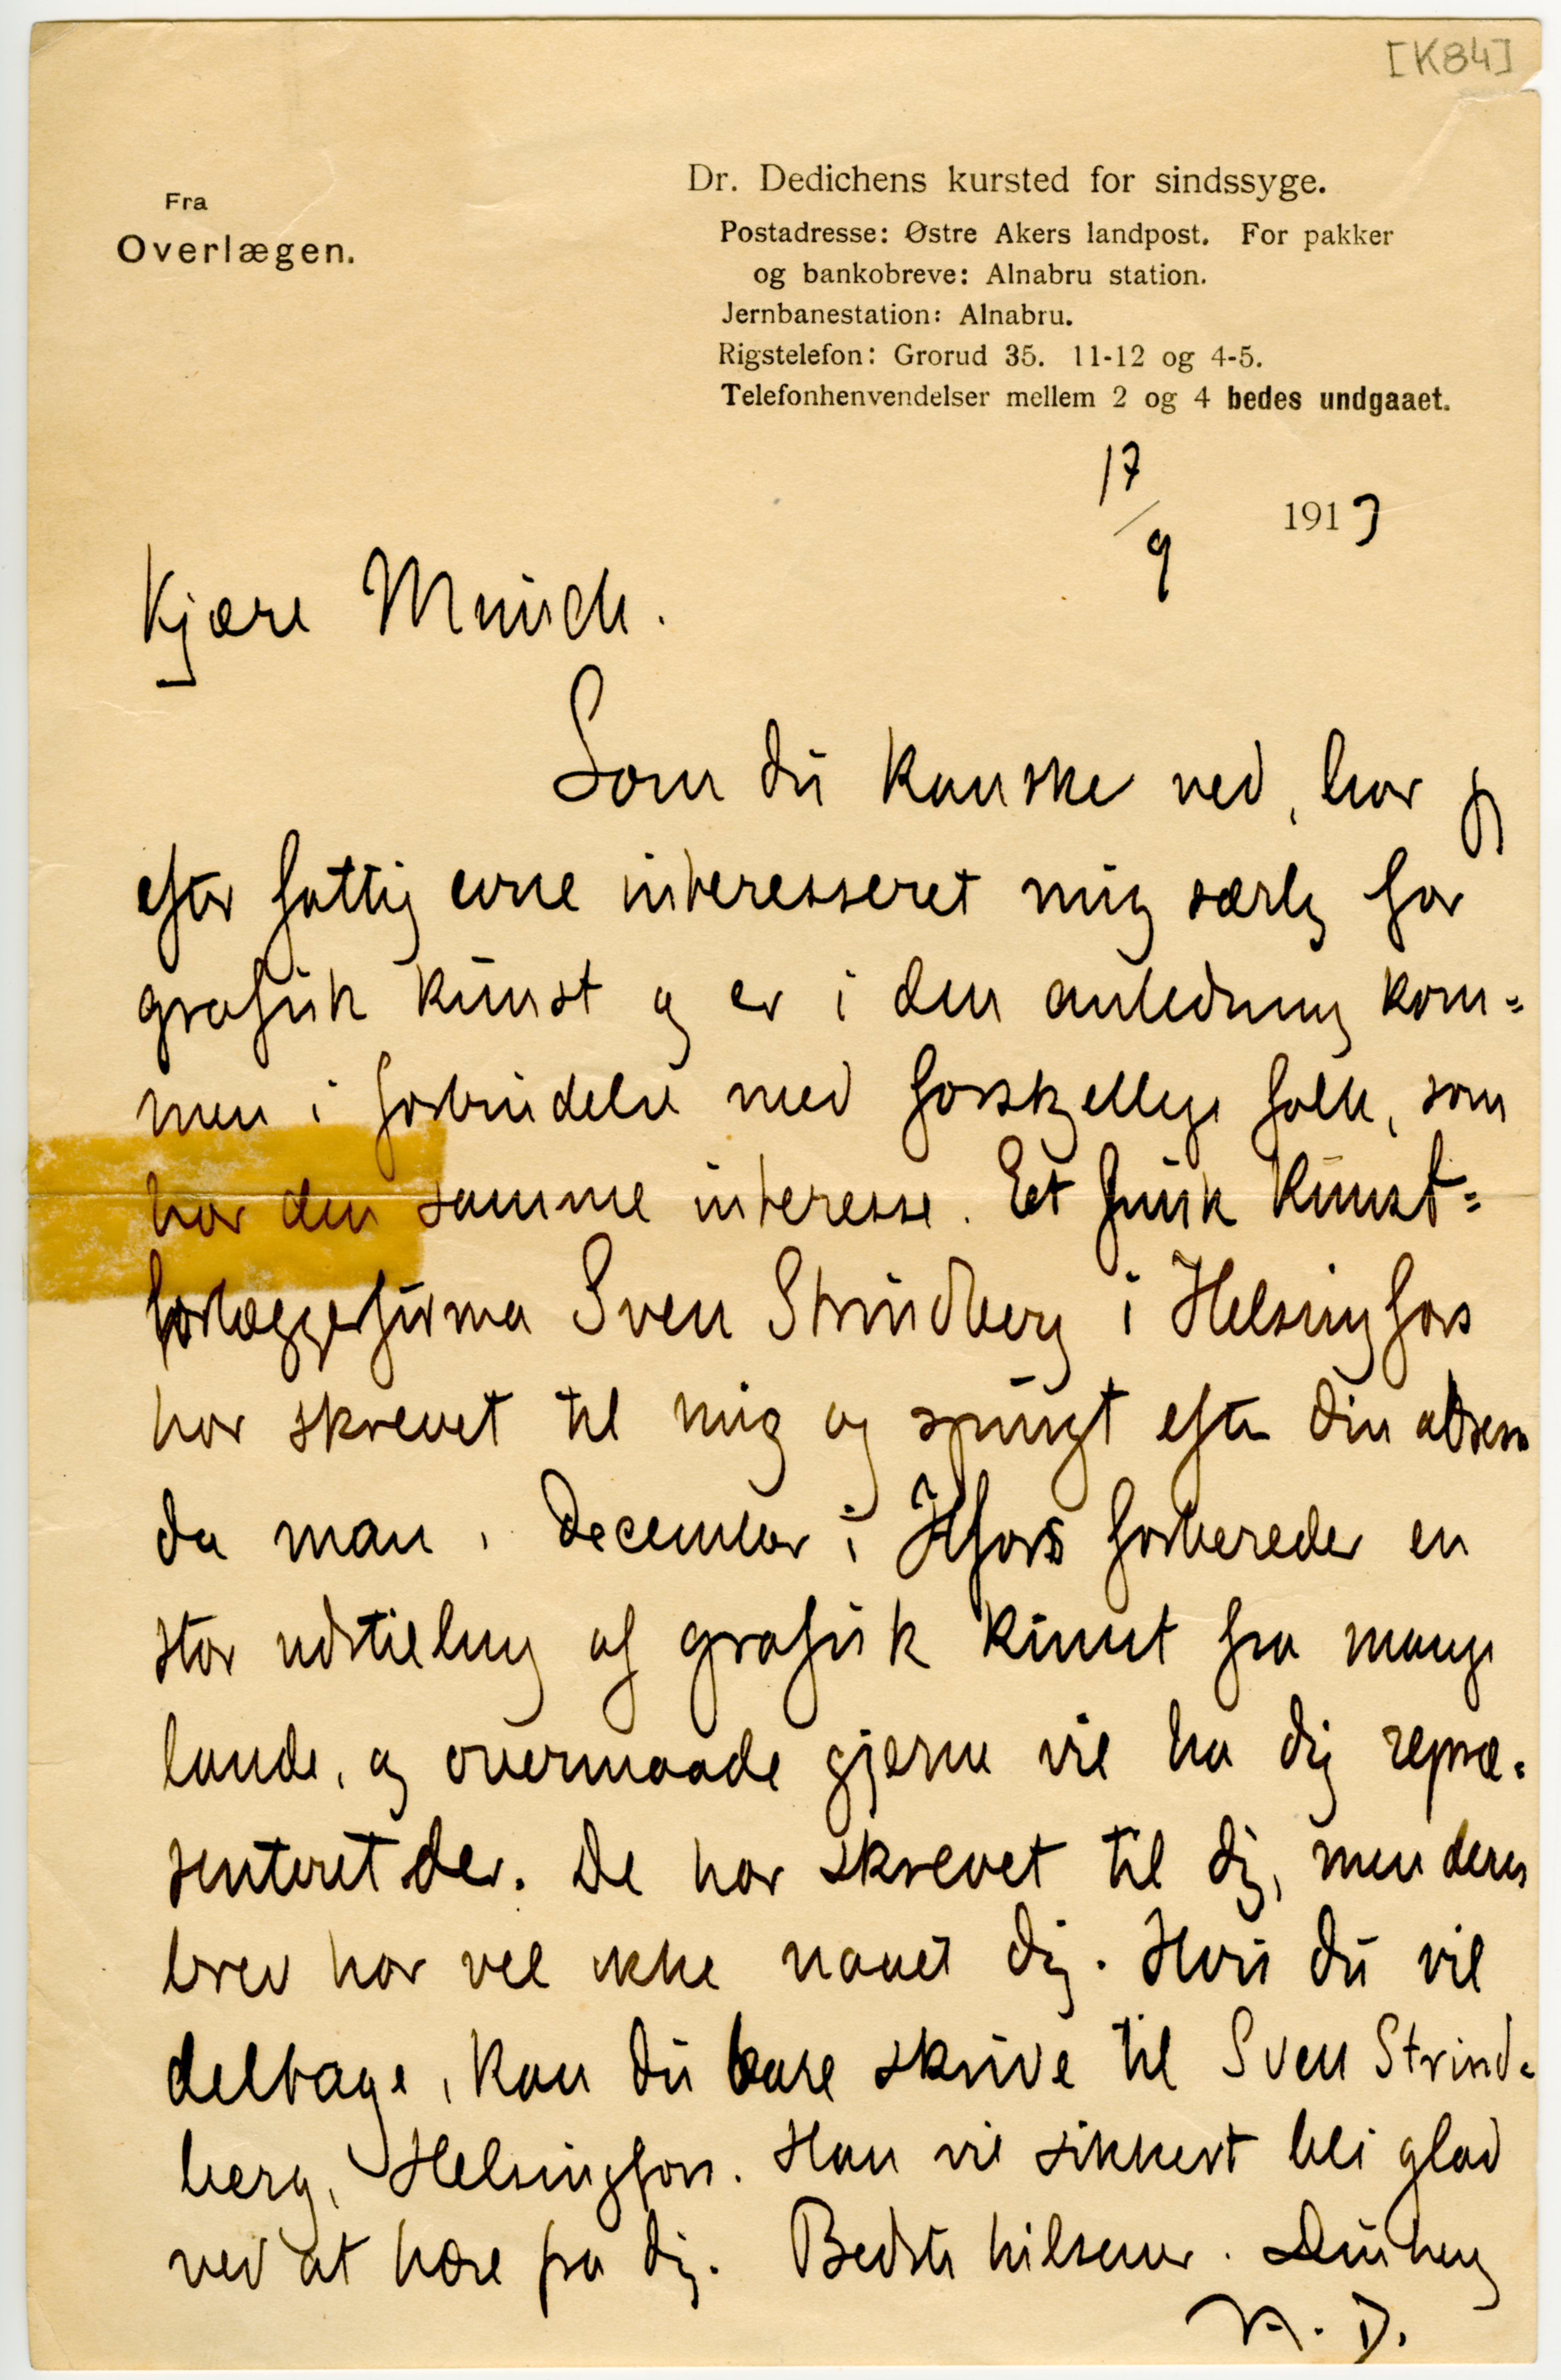 [K84]
Fra
Overlægen.
Dr. Dedichens kursted for sindssyge.
Postadresse: Østre Akers landpost. For pakker
og bankobreve: Alnabru station.
Jernbanestation: Alnabru.
Rigstelefon: Grorud 35. 11-12 og 4-5.
Telefonhenvendelser mellem 2 og 4 bedes undgaaet.
17/9 1913
Kjære Munch.
Som du kanske ved, har jeg
efter fattig evne interesseret mig særlig for
grafisk kunst og er i den anledning kom=
men i forbindelse med forskjellige folk, som
har den samme interesse. Et finsk kunst=
forlæggerfirma Sven Strindberg i Helsingfors
har skrevet til mig og spurgt efter din adresse
da man i december i Hfors forbereder en
stor udstilling af grafisk kunst fra mange
lande, og overmaade gjerne vil ha dig repræ=
senteret der. De har skrevet til dig, men deres
brev har vel ikke naaet dig. Hvis du vil
deltage, kan du bare skrive til Sven Strind=
berg, Helsingfors. Han vil sikkert bli glad
ved at høre fra dig. Bedste hilsener. Din heng
H. D.